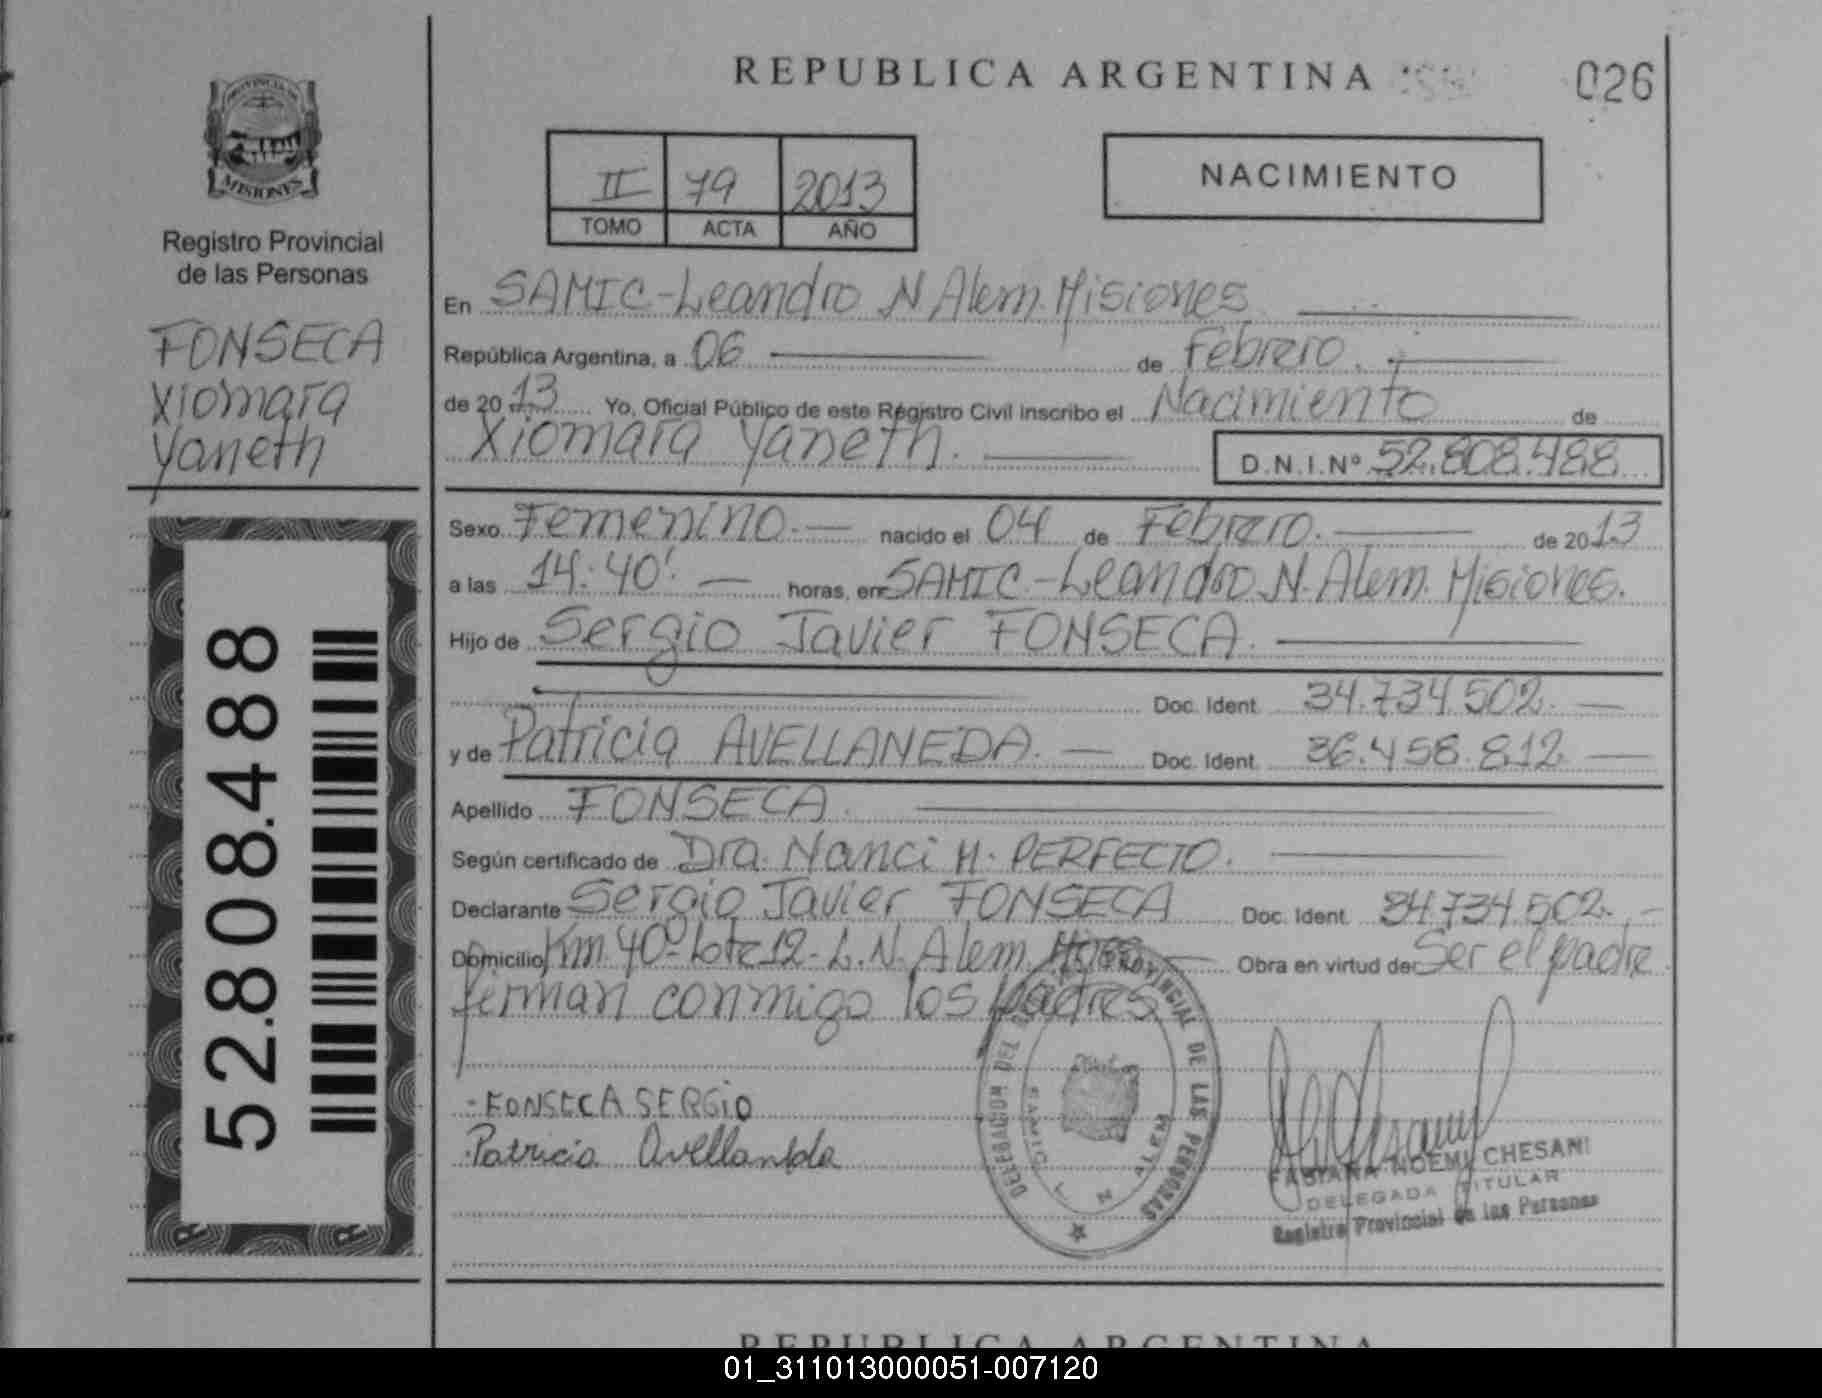 REPUBLICA ARGENTINA
026
PROVINCIA DE
MISIONES
Registro Provincial
de las Personas
FONSECA
Xiomara
Yaneth
52.808.488
II 79 2013
TOMO ACTA AÑO
NACIMIENTO
En SAMIC-Leandro N Alem. Misiones
República Argentina, a 06 de Febrero.
de 2013 Yo, Oficial Público de este Registro Civil inscribo el Nacimiento de
Xiomara Yaneth. D.N.I.Nº 52.808.488
Sexo Femenino. nacido el 04 de Febrero. de 2013
a las 14:40'. horas, en SAMIC-Leandro N. Alem. Misiones.
Hijo de Sergio Javier FONSECA.
Doc. Ident. 34.734.502.
y de Patricia AVELLANEDA. Doc. Ident. 36.458.812
Apellido FONSECA.
Según certificado de Dra. Nanci H. PERFECTO.
Declarante Sergio Javier FONSECA Doc. Ident. 34.734.502.
Domicilio Km 40-Lote 12-L.N. Alem. Obra en virtud de Ser el padre
ferman conmigo los padres
- FONSECA SERGIO
Patricia Avellaneda
DELEGACION DEL PROVINCIAL DE LAS PERSONAS
L N ALEM
FABIANA NOEMI CHESANI
DELEGADA TITULAR
Registro Provincial de las Personas
REPUBLICA ARGENTINA
01_311013000051-007120